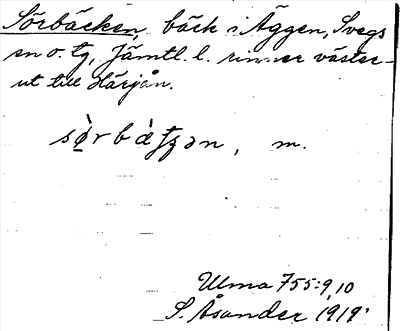 Sörbäcken, bäck i Äggen, Svegs
sn o. tg, Jämtl. l. rinner väster-
ut till Härjån.
m.
Ulma 755:9,10
S. Åsander 1919.